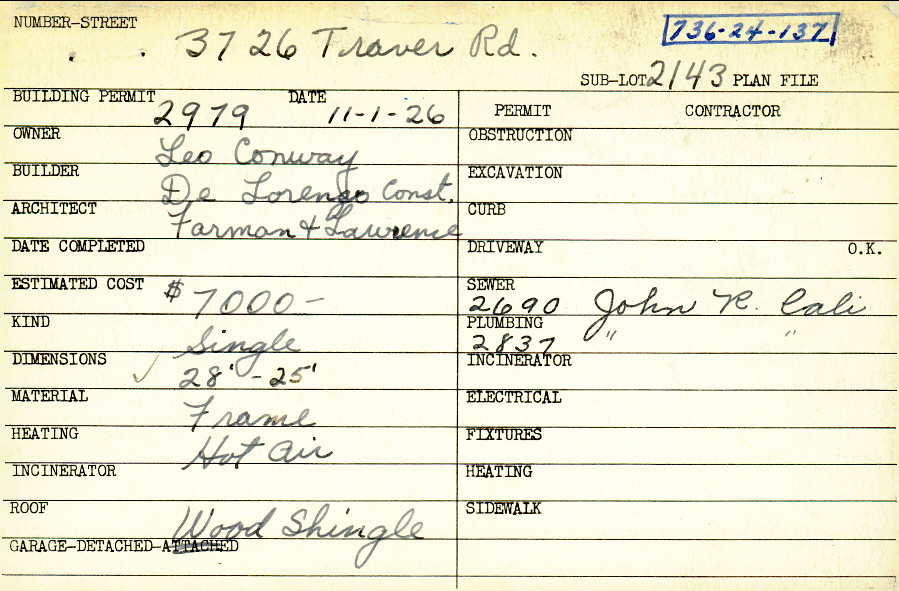 NUMBER-STREET
3726 Traver Rd.
736-24-137
SUB-LOT 2143 PLAN FILE
BUILDING PERMIT 2979 DATE 11-1-26
PERMIT CONTRACTOR
OWNER Leo Conway
OBSTRUCTION
BUILDER De Lorenzo Const.
EXCAVATION
ARCHITECT Farman & Lawrence
CURB
DATE COMPLETED
DRIVEWAY O.K.
ESTIMATED COST $7000-
SEWER 2690 John R. Cali
KIND Single
PLUMBING 2837 " "
DIMENSIONS ✓ 28' - 25'
INCINERATOR
MATERIAL Frame
ELECTRICAL
HEATING Hot Air
FIXTURES
INCINERATOR
HEATING
ROOF Wood Shingle
SIDEWALK
GARAGE-DETACHED-ATTACHED